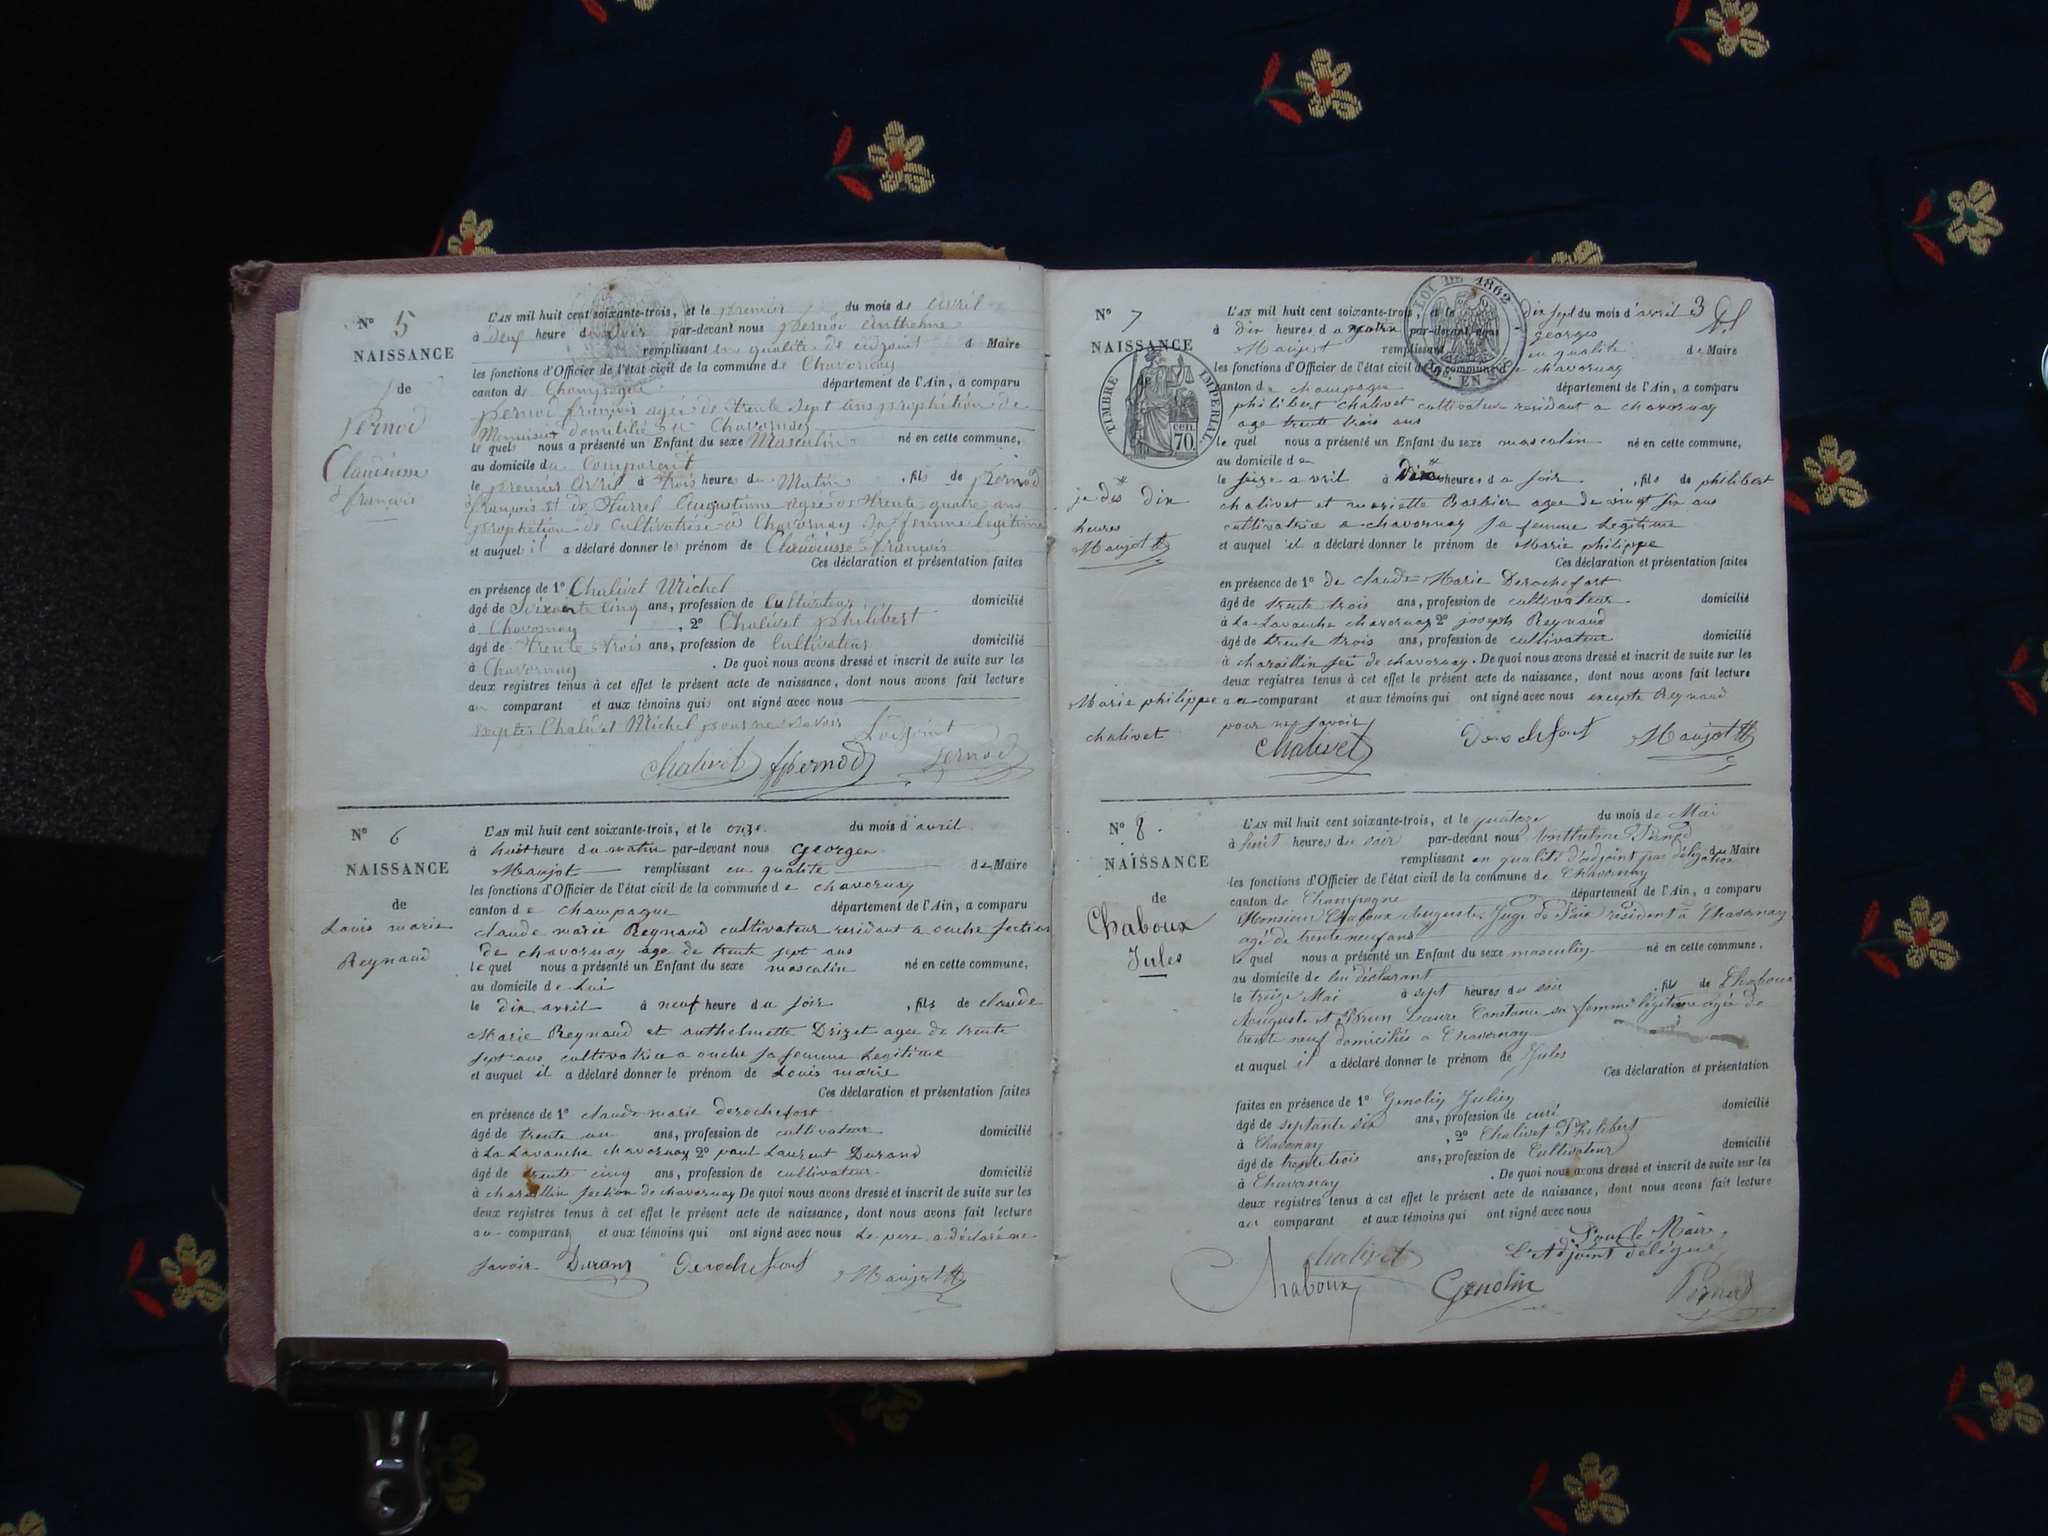 N° 5
NAISSANCE
de
Pernod
Claudiusse
françois
L'AN mil huit cent soixante-trois, et le premier du mois de avril
à deux heure du soir par-devant nous pernod anthelme
remplissant en qualité de adjoint d Maire
les fonctions d'Officier de l'état civil de la commune de Chavornay
canton de Champagne département de l'Ain, a comparu
pernod françois agée de trente sept ans prophétion de
Menuisier domicilié a Chavornay
le quel nous a présenté un Enfant du sexe Masculin né en cette commune,
au domicile du comparent
le premier Avril à trois heure du Matin , fils de pernod
françois et de Hurrel Augustinne agée de trente quatre ans
prophétion de Cultivatrise a Chavornay Sa femme legitime
et auquel il a déclaré donner les prénom de Claudiusse françois
Ces déclaration et présentation faites
en présence de 1° Chalivet Michel
âgé de Soixante cinq ans, profession de Cultivateur domicilié
à Chavornay , 2° Chalivet philibert
âgé de trente trois ans, profession de Cultivateur domicilié
à Chavornay . De quoi nous avons dressé et inscrit de suite sur les
deux registres tenus à cet effet le présent acte de naissance, dont nous avons fait lecture
au comparant et aux témoins qui ont signé avec nous
exepter Chalivet Michel pour ne savoir L'adjoint
chalivet fpernod pernod
N° 6
NAISSANCE
de
Louis marie
Reynaud
L'AN mil huit cent soixante-trois, et le onze du mois d'avril
à huit heure du matin par-devant nous george
Maujot remplissant en qualité de Maire
les fonctions d'Officier de l'état civil de la commune de chavornay
canton de champagne département de l'Ain, a comparu
claude marie Reynaud cultivateur residant a ouche section
de chavornay age de trente sept ans
le quel nous a présenté un Enfant du sexe masculin né en cette commune,
au domicile de Lui
le dix avril à neuf heure du soir , fils de claude
Marie Reynaud et anthelmette Drizet agee de trente
sept ans cultivatrice a ouche sa femme Legitime
et auquel il a déclaré donner le prénom de Louis marie
Ces déclaration et présentation faites
en présence de 1° claude marie derochefort
âgé de trente un ans, profession de cultivateur domicilié
à La Lavanche chavornay 2° paul Laurent Durand
âgé de trente cinq ans, profession de cultivateur domicilié
à charaillin section de chavornay De quoi nous avons dressé et inscrit de suite sur les
deux registres tenus à cet effet le présent acte de naissance, dont nous avons fait lecture
au comparant et aux témoins qui ont signé avec nous Le pere a déclaré ne
savoir Durand derochefort Maujot
N° 7
NAISSANCE
de
TIMBRE IMPERIAL
70 cen.
je dis dix
heures
Maujot
Marie philippe
chalivet
LOI DE 1862
EN SUS
L'AN mil huit cent soixante-trois, et le dix sept du mois d'avril 3
à dix heures du matin par-devant nous georges
Maujot remplissant en qualité de Maire
les fonctions d'Officier de l'état civil de la commune de chavornay
canton de champagne département de l'Ain, a comparu
philibert chalivet cultivateur residant a chavornay
age trente trois ans
le quel nous a présenté un Enfant du sexe masculin né en cette commune,
au domicile de
le seize avril à Dix heures du soir , fils de philibert
chalivet et mariette Barbier agee de vingt six ans
cultivatrice a chavornay sa femme Legitime
et auquel il a déclaré donner le prénom de Marie philippe
Ces déclaration et présentation faites
en présence de 1° de claude Marie Derochefort
âgé de trente trois ans, profession de cultivateur domicilié
à La Lavanche chavornay 2° joseph Reynaud
âgé de trente trois ans, profession de cultivateur domicilié
à charaillin de chavornay. De quoi nous avons dressé et inscrit de suite sur les
deux registres tenus à cet effet le présent acte de naissance, dont nous avons fait lecture
au comparant et aux témoins qui ont signé avec nous exepte Reynaud
pour ne savoir
chalivet Derochefort Maujot
N° 8.
NAISSANCE
de
Chaboux
Jules
L'AN mil huit cent soixante-trois, et le quatorze du mois de Mai
à huit heures du soir par-devant nous Anthelme Pernod
remplissant en qualité d'adjoint par délégation du Maire
les fonctions d'Officier de l'état civil de la commune de Chavornay
canton de Champagne département de l'Ain, a comparu
Monsieur Chaboux Auguste, Juge de Paix résident à Chavornay
agé de trente neuf ans
le quel nous a présenté un Enfant du sexe masculin né en cette commune,
au domicile de lui déclarant
le treize Mai à sept heures du soir , fils de Chaboux
Auguste et Brun Laure Constance sa femme légitime agée de
trente neuf domiciliés à Chavornay
et auquel il a déclaré donner le prénom de Jules
Ces déclaration et présentation
faites en présence de 1° Genolin Julien
âgé de septante six ans, profession de curé domicilié
à Chavornay , 2° Chalivet Philibert
âgé de trente trois ans, profession de Cultivateur domicilié
à Chavornay . De quoi nous avons dressé et inscrit de suite sur les
deux registres tenus à cet effet le présent acte de naissance, dont nous avons fait lecture
au comparant et aux témoins qui ont signé avec nous
Pour le Maire,
L'Adjoint délégué,
chalivet
Chaboux Genolin Pernod